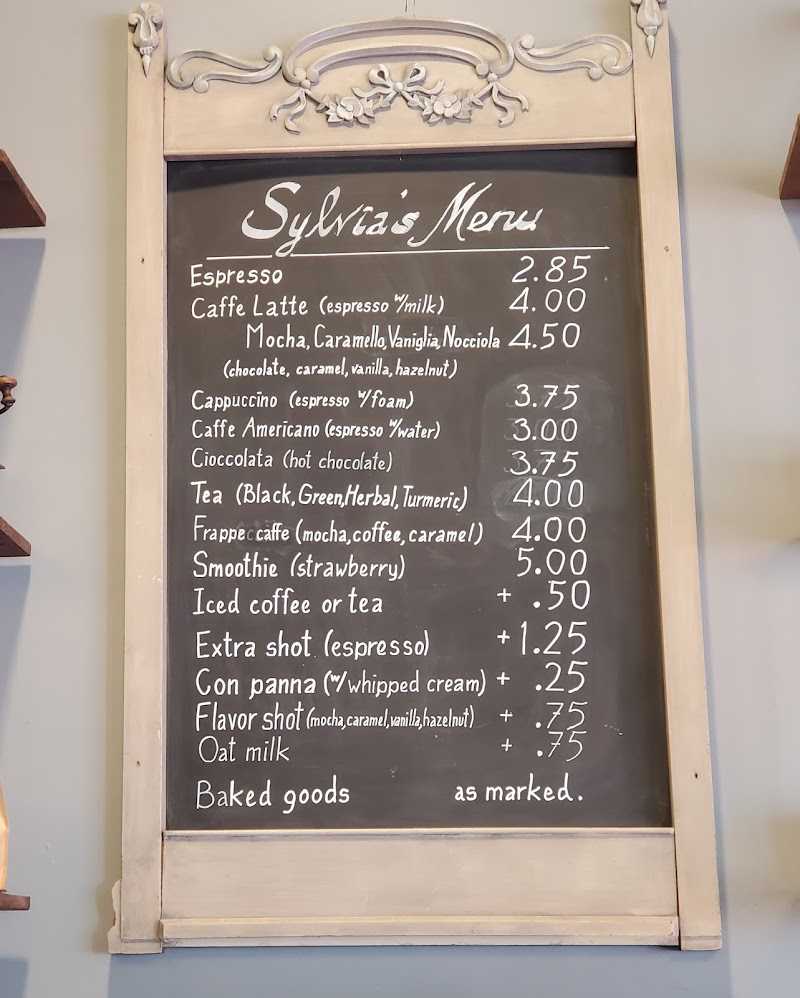 Sylvia's Menu
Espresso 2.85
Caffe Latte (espresso w/milk) 4.00
Mocha, Caramello, Vaniglia, Nocciola 4.50
(chocolate, caramel, vanilla, hazelnut)
Cappuccino (espresso w/foam) 3.75
Caffe Americano (espresso w/water) 3.00
Cioccolata (hot chocolate) 3.75
Tea (Black, Green, Herbal, Turmeric) 4.00
Frappe caffe (mocha, coffee, caramel) 4.00
Smoothie (strawberry) 5.00
Iced coffee or tea + .50
Extra shot (espresso) +1.25
Con panna (w/whipped cream) + .25
Flavor shot (mocha, caramel, vanilla, hazelnut) + .75
Oat milk + .75
Baked goods as marked.